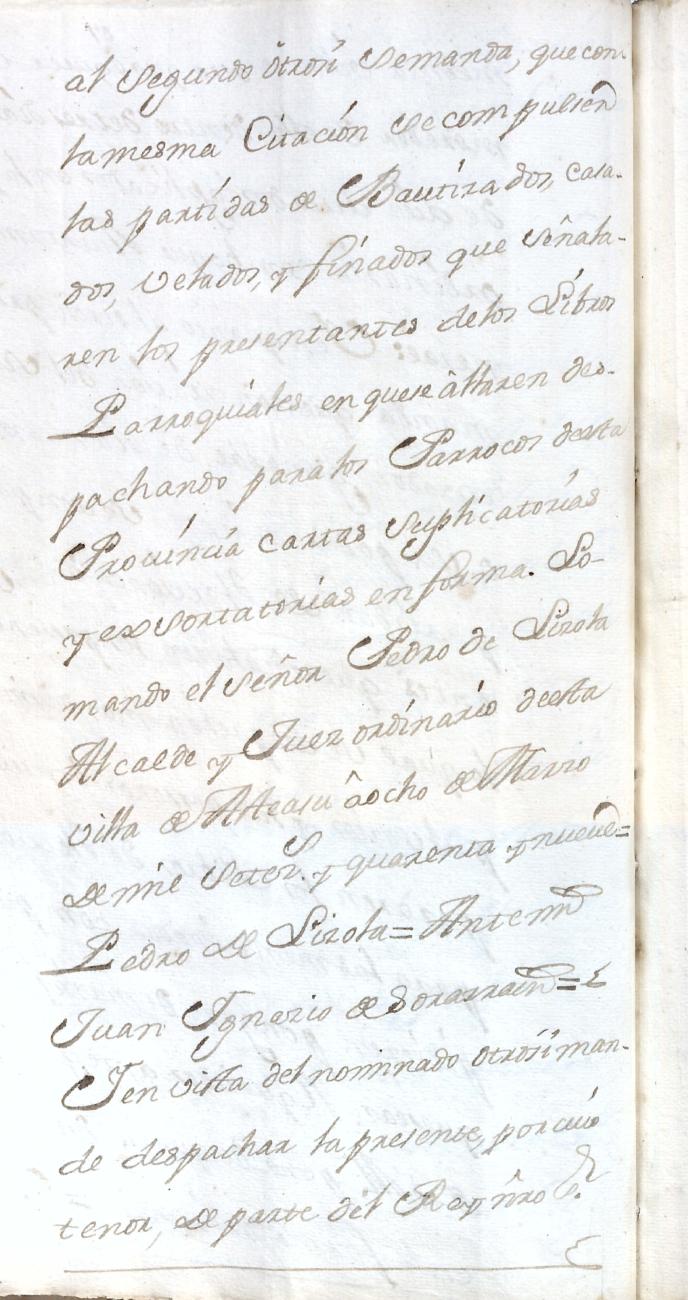 al Segundo òtrosí Semanda, que con
la mesma Citación Se compulsen
las partídas de Bautizados, Casa-
dos, velados, y fínados que Señala-
ren los presentantes delos Líbros
Parroquíales en que se âllaren des-
pachando para los Parrocos desta
Províncía cartas Suplicatorías
y exsortatorías en forma. Lo-
mando el Señor Pedro de Lizola
Alcalde y Juez ordinarío deesta
villa de Asteasu âocho de Marzo
de mil Setez.s y quarenta y nueve=
Pedro de Lizola= Antemi
Juan Ygnazio de Sorazraein=
Yen vista del nominado otrosí man-
de despachar la presente, por cuio
tenor, de parte del Rey ñro S.r